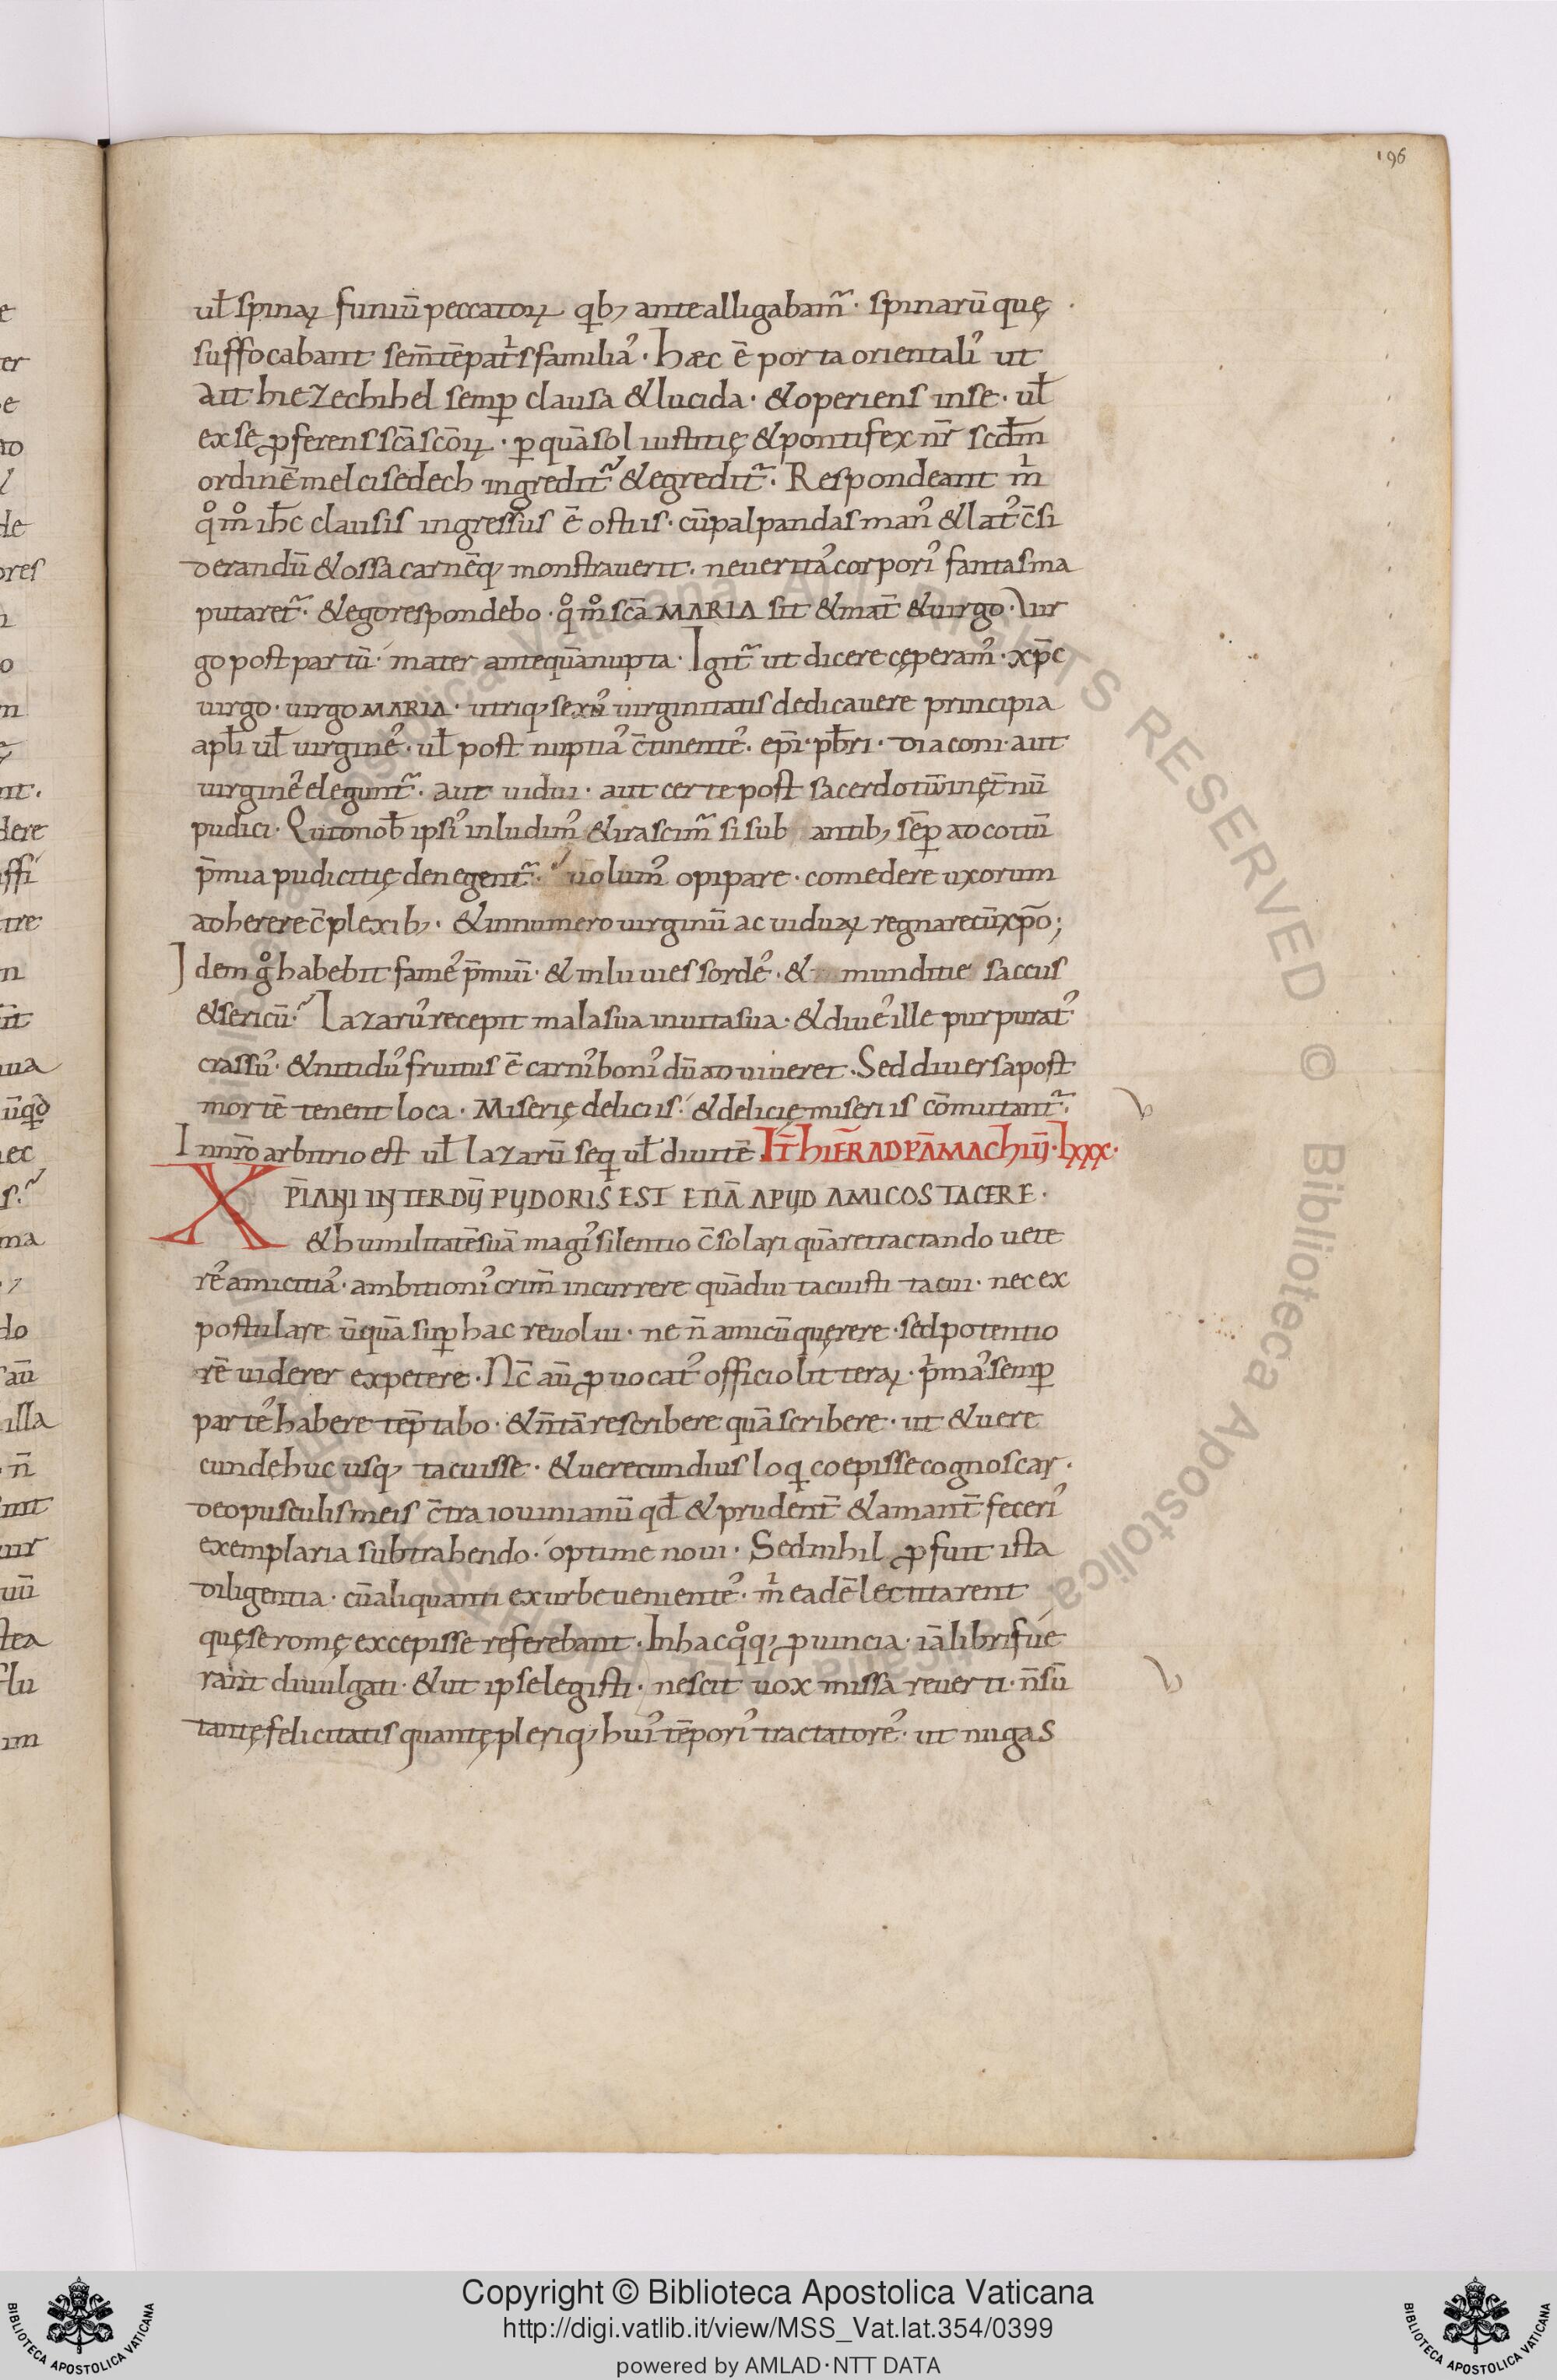 196
ul̄ spinaꝝ funiū peccatoꝝ qb; ante alligabam̃· spinarū quę
suffocabant sem̄tē pat̄s familia᾽· haec ē porta orientali᾽ ut
ait hiezechihel semꝑ clausa & lucida· & operiens in se· ul̄
ex se ꝓferens sc̄a sc̄oꝝ· ꝑ quā sol iustitię & pontifex nr̄ scdm̄
ordinē melcisedech ingredit̃ & egredit̃· Respondeant m̄
qͦmͦ ih̄c clausis ingressus ē ostiis· cū palpandas man᾽ & lat᾽ c̄si
derandū & ossa carnēq; monstrauerit· ne uerita᾽ corpori᾽ fantasma
putaret̃· & ego respondebo· qͦmͦ sc̄a MARIA sit & mat̄ & uirgo· Uir
go post partū· mater antequā nupta· Igit̃ ut dicere cęperam᾽· xp̄c
uirgo· uirgo MARIA· utriq; sexu᾽ uirginitatis dedicauere principia
apl̄i ul̄ uirgine᾽· ul̄ post nuptia᾽ c̄tinente᾽· ep̄i· pb̄ri· diaconi· aut
uirgine᾽ elegunt̃· aut uidui· aut certe post sacerdotiū in ęt̄nū
pudici· Quid nob̄ ipsi᾽ inludim᾽ & irascim̃ si sub antib; sēꝑ ad coitū
p̄mia pudicitię denegent̃· uolum᾽ opipare· comedere uxorum
adherere c̄plexib;· & in numero uirginū ac uiduaꝝ regnare cū xp̄o;
Idem gͦ habebit fame᾽ p̄miū· & inluuies sorde᾽· & munditie saccus
& sericū· Lazaru᾽ recepit mala sua in uita sua· & diue᾽ ille purpurat᾽
crassu᾽· & nitidu᾽ fruitus ē carni᾽ boni᾽ dū aduiueret· Sed diuersa post
mortē tenent loca· Miserię deliciis· & delicię miseriis cōmutant̃·
In nr̄o arbitrio est ul̄ lazarū seq̄ ul̄ diuitē IT̄ HIER̄ AD PĀMACHIŪ· LXXX·
XP̄IANI INTERDŪ PUDORIS EST ETIĀ APUD AMICOS TACERE·
& humilitatē suā magi᾽ silentio c̄solari quā retractando uete
re᾽ amicitia᾽· ambitioni᾽ crim̄ incurrere quādiu tacuisti tacui· nec ex
postulare ūquā suꝑ hac re uolui· ne n̄ amicū quęrere· sed potentio
rē uiderer expetere· Nc̄ aū ꝓuocat᾽ officio litteraꝝ· p̄ma᾽ semꝑ
parte᾽ habere tēptabo· & n̄ tā rescribere quā scribere· ut & uere
cunde huc usq; tacuisse· & uerecundius loq̄ coepisse cognoscar·
De opusculis meis c̄tra iouinianū qd̄ & prudent̄ & amant̄ feceri᾽
exemplaria subtrahendo· optime noui· Sed nihil ꝓfuit ista
diligentia· cū aliquanti ex urbe ueniente᾽· m̄ eadē lectitarent
quę se romę excepisse referebant· In hac qͦq; ꝓuincia· iā libri fue
rant diuulgati· & ut ipse legisti· nescit uox missa reuerti· n̄ sū
tantę felicitatis quantę pleriq; hui᾽ tēpori᾽ tractatore᾽· ut nugas
Copyright © Biblioteca Apostolica Vaticana
http://digi.vatlib.it/view/MSS_Vat.lat.354/0399
powered by AMLAD·NTT DATA
BIBLIOTECA APOSTOLICA VATICANA
BIBLIOTECA APOSTOLICA VATICANA